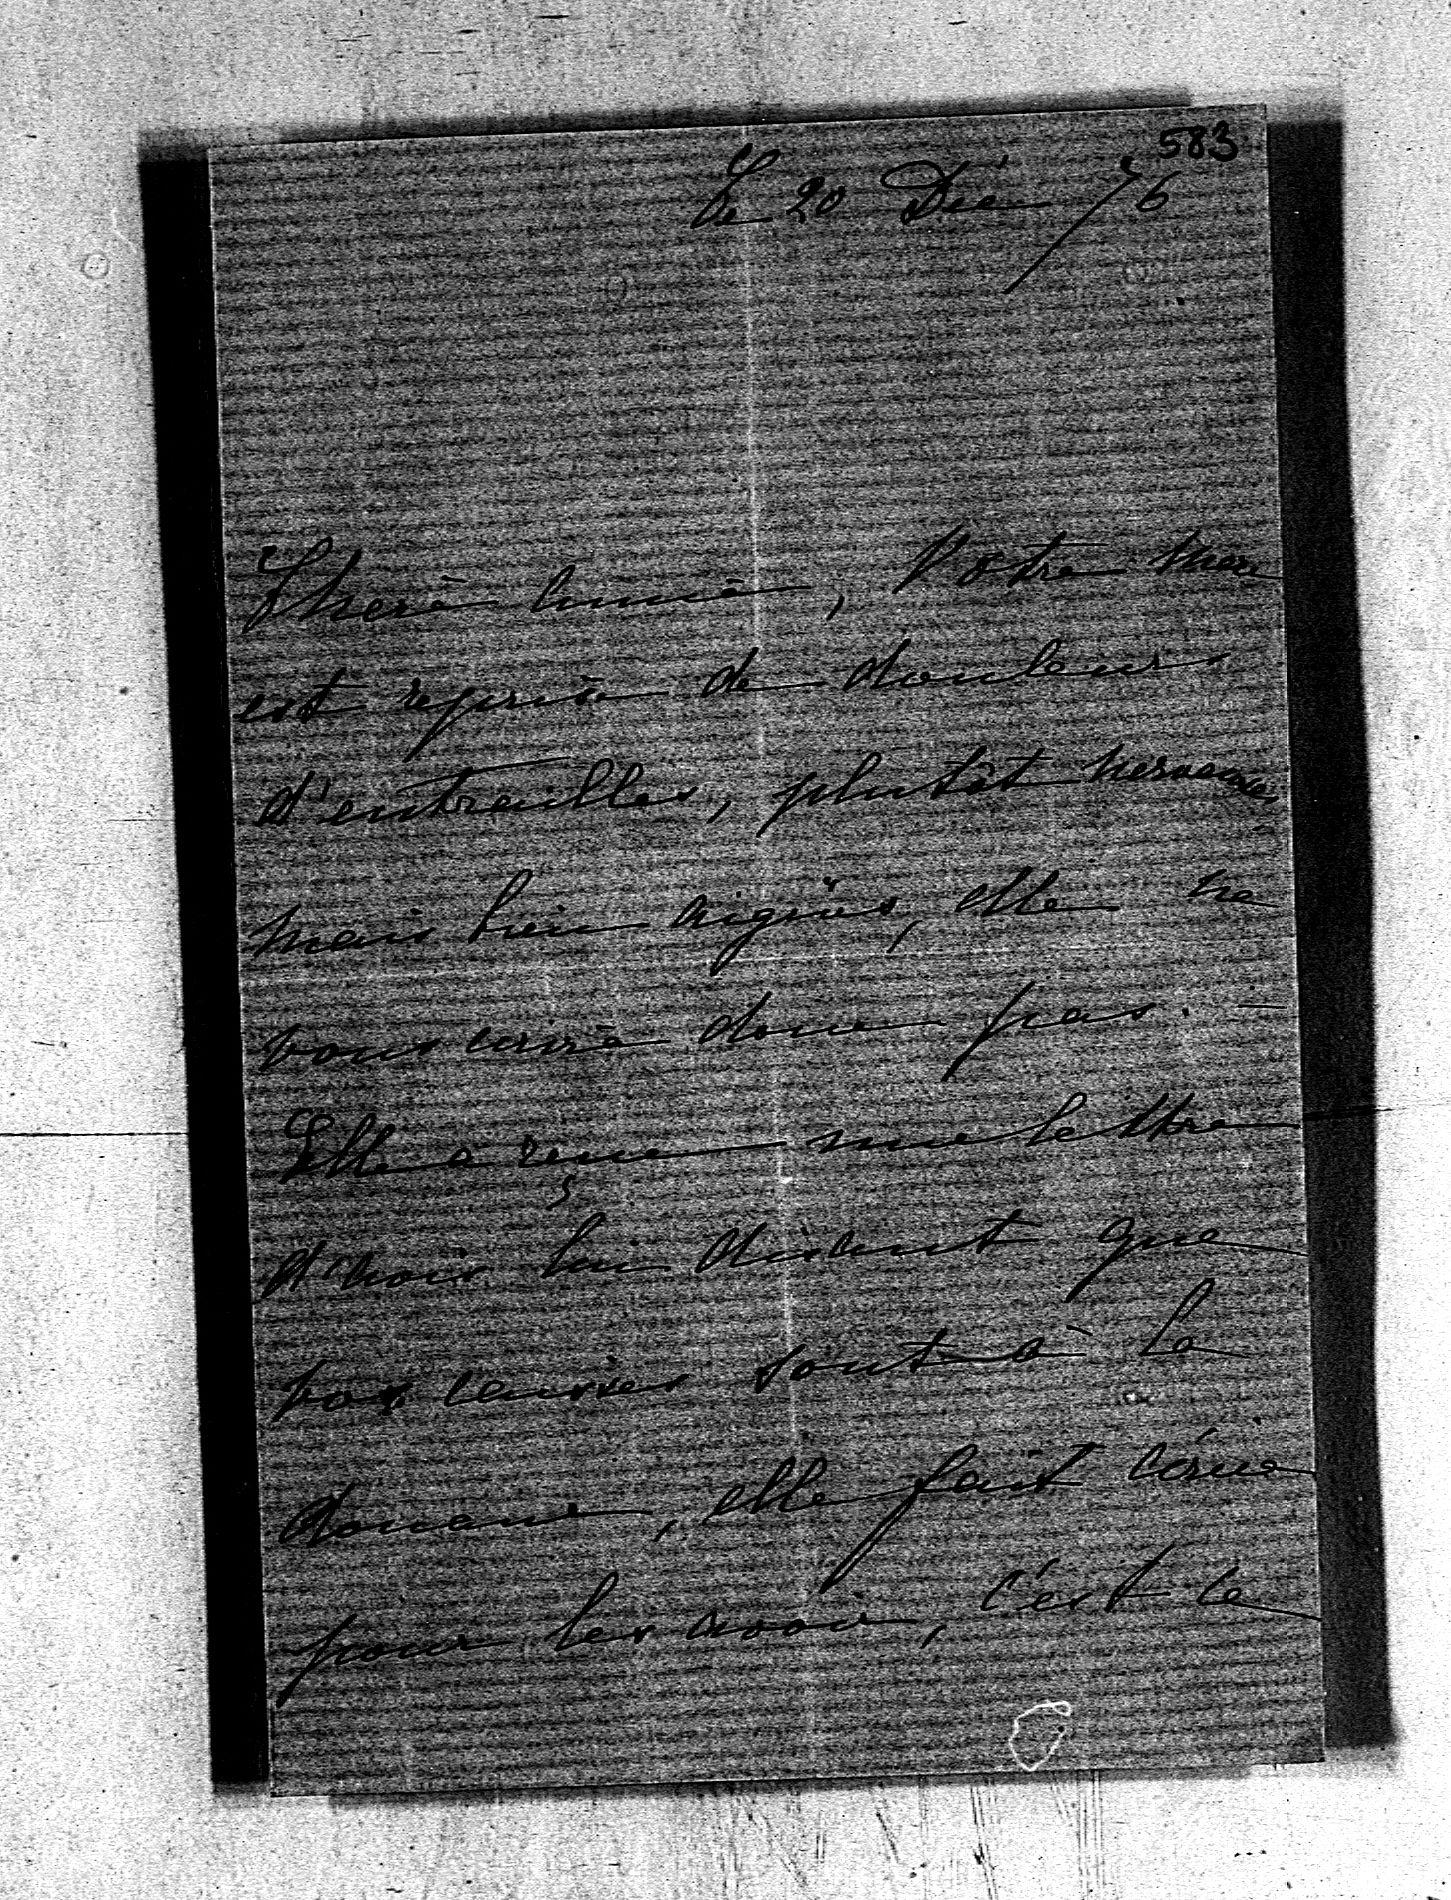 583
Le 20 Déc 76
Cherè amie, Votre mere
est reprise de douleurs
d'entrailles, plutôt nerveuses
mais bien aigües, elle ne
vous écrira donc pas. —
Elle a reçue une lettre
d'Aoir lui disant que
vos caisses sont à la
douane, elle fait écrire
pour les avoir, c'est le